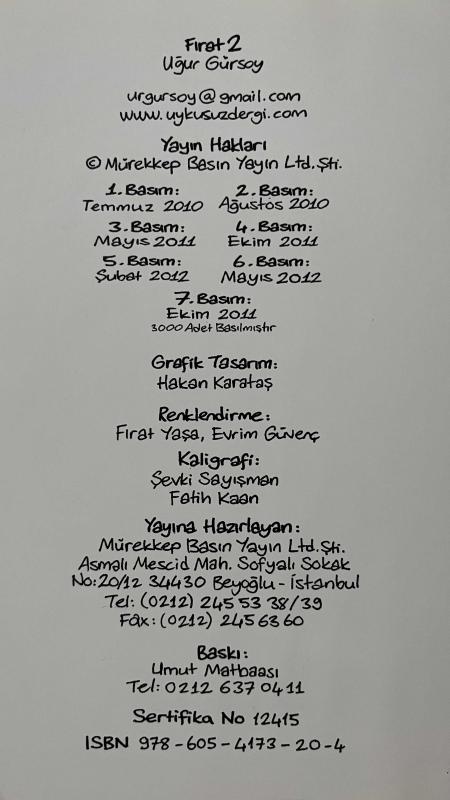 Fırat 2
Uğur Gürsoy
urgursoy@gmail.com
www.uykusuzdergi.com
Yayın Hakları
© Mürekkep Basın Yayın Ltd.Şti.
1. Basım: 2. Basım:
Temmuz 2010 Ağustos 2010
3. Basım: 4. Basım:
Mayıs 2011 Ekim 2011
5. Basım: 6. Basım:
Şubat 2012 Mayıs 2012
7. Basım:
Ekim 2011
3000 Adet Basılmıştır
Grafik Tasarım:
Hakan Karataş
Renklendirme:
Fırat Yaşa, Evrim Güvenç
Kaligrafi:
Şevki Sayışman
Fatih Kaan
Yayına Hazırlayan:
Mürekkep Basın Yayın Ltd.Şti.
Asmalı Mescid Mah. Sofyalı Sokak
No:20/12 34430 Beyoğlu - İstanbul
Tel: (0212) 245 53 38/39
Fax: (0212) 245 63 60
Baskı:
Umut Matbaası
Tel: 0212 637 04 11
Sertifika No 12415
ISBN 978-605-4173-20-4